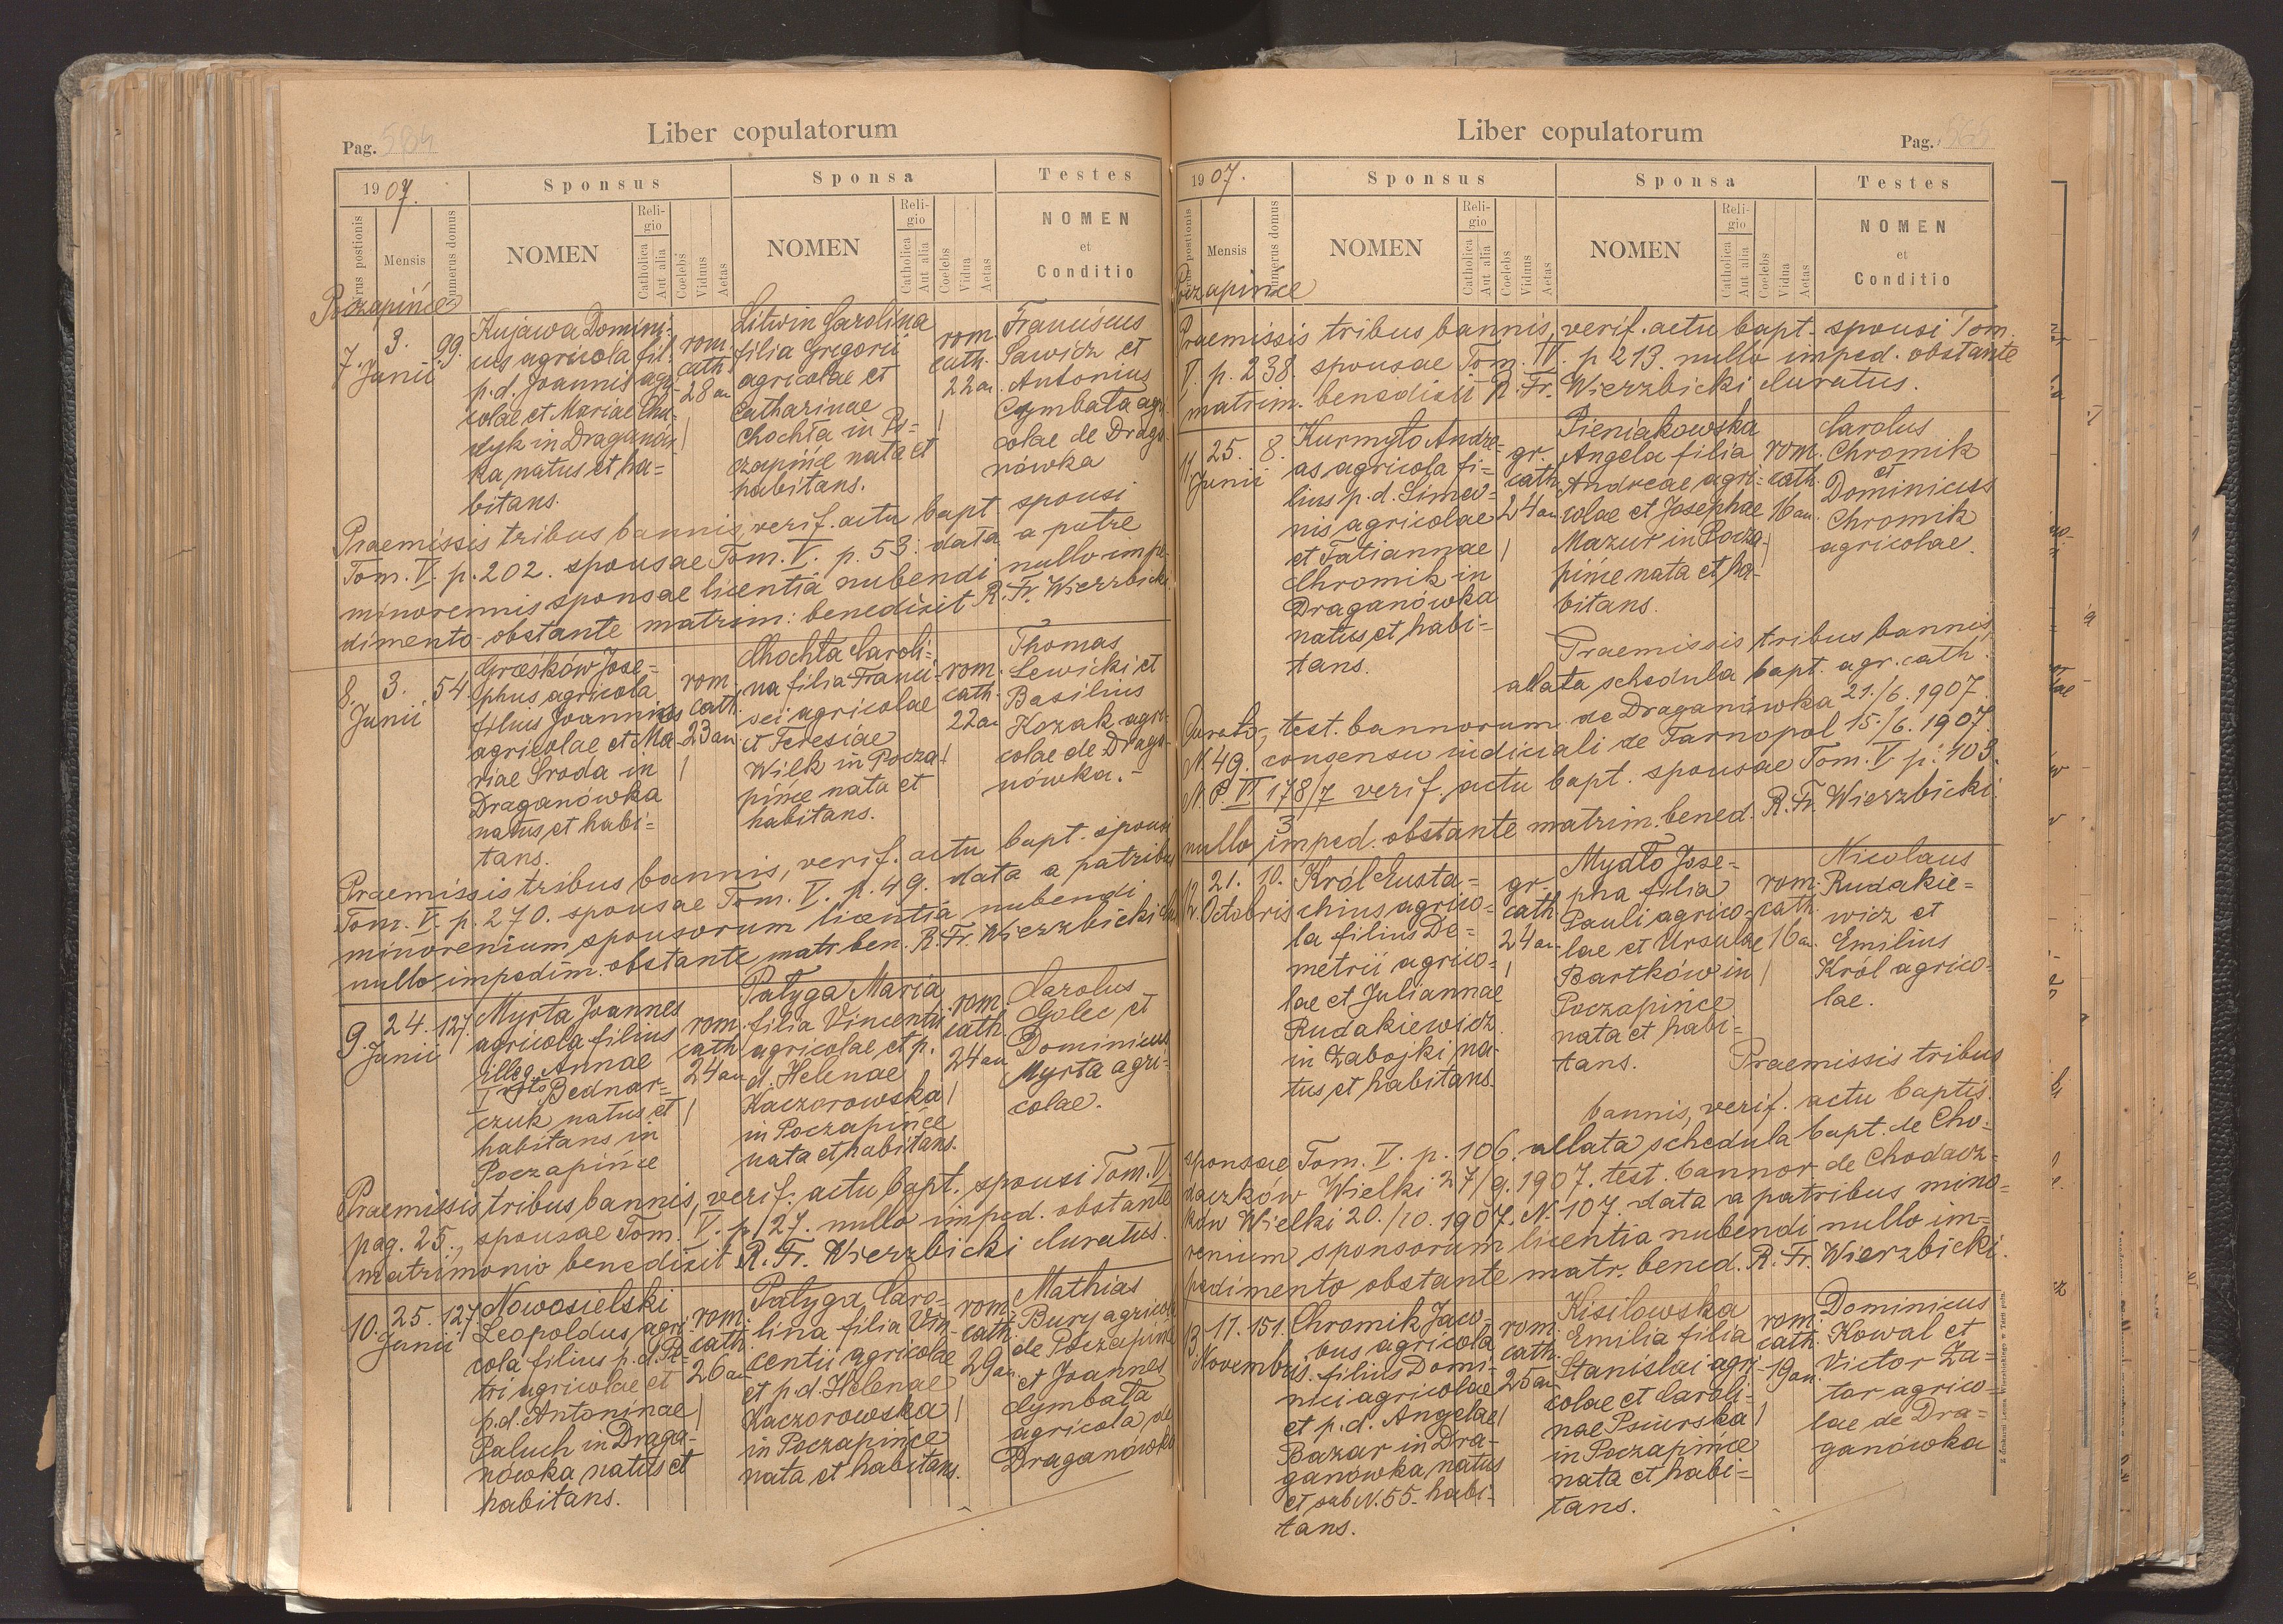 Liber copulatorum
Pag. 584
1907.
Sponsus
Sponsa
Testes
Mensis
Numerus domus
NOMEN
Religio
Catholica
Aut alia
Coelebs
Viduus
Aetas
NOMEN
Religio
Catholica
Aut alia
Coelebs
Vidua
Aetas
NOMEN
et
Conditio
Poczapińce
7. 3. Junii 99.
Kujawa Domini-
cus agricola fil.
p. d. Joannis agri-
colae et Mariae Chu-
dyk in Draganów-
ka natus et ha-
bitans.
rom.
cath.
28 an
Litwin Carolina
filia Gregorii
agricolae et
Catharinae
Chochła in Po-
czapińce nata et
habitans.
rom.
cath.
22 an.
Franciscus
Sawicz et
Antonius
Cymbała agri-
colae de Draga-
nówka
Praemissis tribus bannis, verif. actu bapt. sponsi
Tom. V. p. 202. sponsae Tom. V. p. 53. data a patre
minorennis sponsae licentiâ nubendi nullo impe-
dimento obstante matrim: benedixit R. Fr. Wierzbicki
8. 3. Junii 54.
Greśków Jose-
phus agricola
filius Joannis
agricolae et Ma-
riae Sroda in
Draganówka
natus et habi=
tans.
rom.
cath.
23 an
Chochła Caroli=
na filia Franci-
sci agricolae
et Teresiae
Wilk in Pocza-
pińce nata et
habitans.
rom.
cath.
22 an
Thomas
Lewicki et
Basilius
Kozak agri-
colae de Draga-
nówka.
Praemissis tribus bannis, verif. actu bapt. sponsi
Tom. V. p. 270. sponsae Tom. V. p. 49. data a patribus
minorenium sponsorum licentiâ nubendi
nullo impedim. obstante matr. ben. R. Fr. Wierzbicki
9. 24. Junii 127.
Myrta Joannes
agricola filius
illeg. Annae
Bednar=
czuk natus et
habitans in
Poczapińce
rom.
cath
24 an
Patyga Maria
filia Vincentii
agricolae et p.
d. Helenae
Kaczorowska
in Poczapińce
nata et habitans.
rom.
cath.
24 an
Carolus
Golec et
Dominicus
Myrta agri-
colae.
Praemissis tribus bannis, verif. actu bapt. sponsi Tom. V.
pag. 25., sponsae Tom. V. p. 127. nullo imped. obstante
matrimonio benedixit R. Fr. Wierzbicki Curatus.
10. 25. Junii 127.
Nowosielski
Leopoldus agri-
cola filius p. d. Pe-
tri agricolae et
p. d. Antoninae
Paluch in Draga-
nówka natus et
habitans.
rom.
cath.
26 an
Patyga Caro-
lina filia Vin-
centii agricolae
et p. d. Helenae
Kaczorowska
in Poczapińce
nata et habitans.
rom.
cath.
29 an.
Mathias
Bury agricola
de Poczapińce
et Joannes
Cymbała
agricola de
Draganówka
Liber copulatorum
Pag.
1907.
Sponsus
Sponsa
Testes
Mensis
NOMEN
Religio
Catholica
Aut alia
Coelebs
Viduus
Aetas
NOMEN
Religio
Catholica
Aut alia
Coelebs
Vidua
Aetas
NOMEN
et
Conditio
Poczapińce
Praemissis tribus bannis, verif. actu bapt. sponsi Tom.
V. p. 238. sponsae Tom. IV. p. 213. nullo imped. obstante
matrim. benedixit R. Fr. Wierzbicki Curatus.
11. 25. Junii 8.
Kurmyło Andre-
as agricola fi=
lius p. d. Simeo=
nis agricolae
et Tatiannae
Chromik in
Draganówka
natus et habi=
tans.
gr.
cath.
24 an
Pieniakowska
Angela filia
Andreae agri-
colae et Josephae
Mazur in Pocza-
pińce nata et ha-
bitans.
rom.
cath.
16 an.
Carolus
Chromik
et
Dominicus
Chromik
agricolae.
Praemissis tribus bannis,
allata schedula bapt. a gr. cath.
Parocho, test. bannorum de Draganówka 21./6. 1907.
N. 49. consensu iudiciali de Tarnopol 15./6. 1907.
N. P. VI 178/7 verif. actu bapt. sponsae Tom. V p. 103.
3
nullo imped. obstante matrim. bened. R. Fr. Wierzbicki.
12. 21. Octobris 10.
Król Eusta-
chius agrico-
la filius De=
metrii agrico=
lae et Juliannae
Rudakiewicz
in Zabojki na-
tus et habitans.
gr.
cath.
24 an.
Mydło Jose=
pha filia
Pauli agrico-
lae et Ursulae
Bartków in
Poczapińce
nata et habi=
tans.
rom.
cath.
16 an.
Nicolaus
Rudakie=
wicz et
Emilius
Król agrico-
lae.
Praemissis tribus
bannis, verif. actu baptis.
sponsae Tom. V. p. 106. allata schedula bapt. de Cho=
daczków Wielki 27/9. 1907. test. bannor. de Chodacz=
ków Wielki 20./10. 1907. N. 107. data a patribus mino=
renium sponsorum licentia nubendi nullo im=
pedimento obstante matr. bened. R. Fr. Wierzbicki.
13. 17. Novembris. 151.
Chromik Jaco-
bus agricola
filius Domi-
nici agricolae
et p. d. Angelae
Bazar in Dra-
ganówka natus
et sub N. 55. habi-
tans.
rom.
cath.
25 an
Kisilowska
Emilia filia
Stanislai agri-
colae et Caroli-
nae Psiurska
in Poczapińce
nata et habi=
tans.
rom.
cath.
19 an.
Dominicus
Kowal et
Victor Za=
tor agrico=
lae de Dra=
ganówka